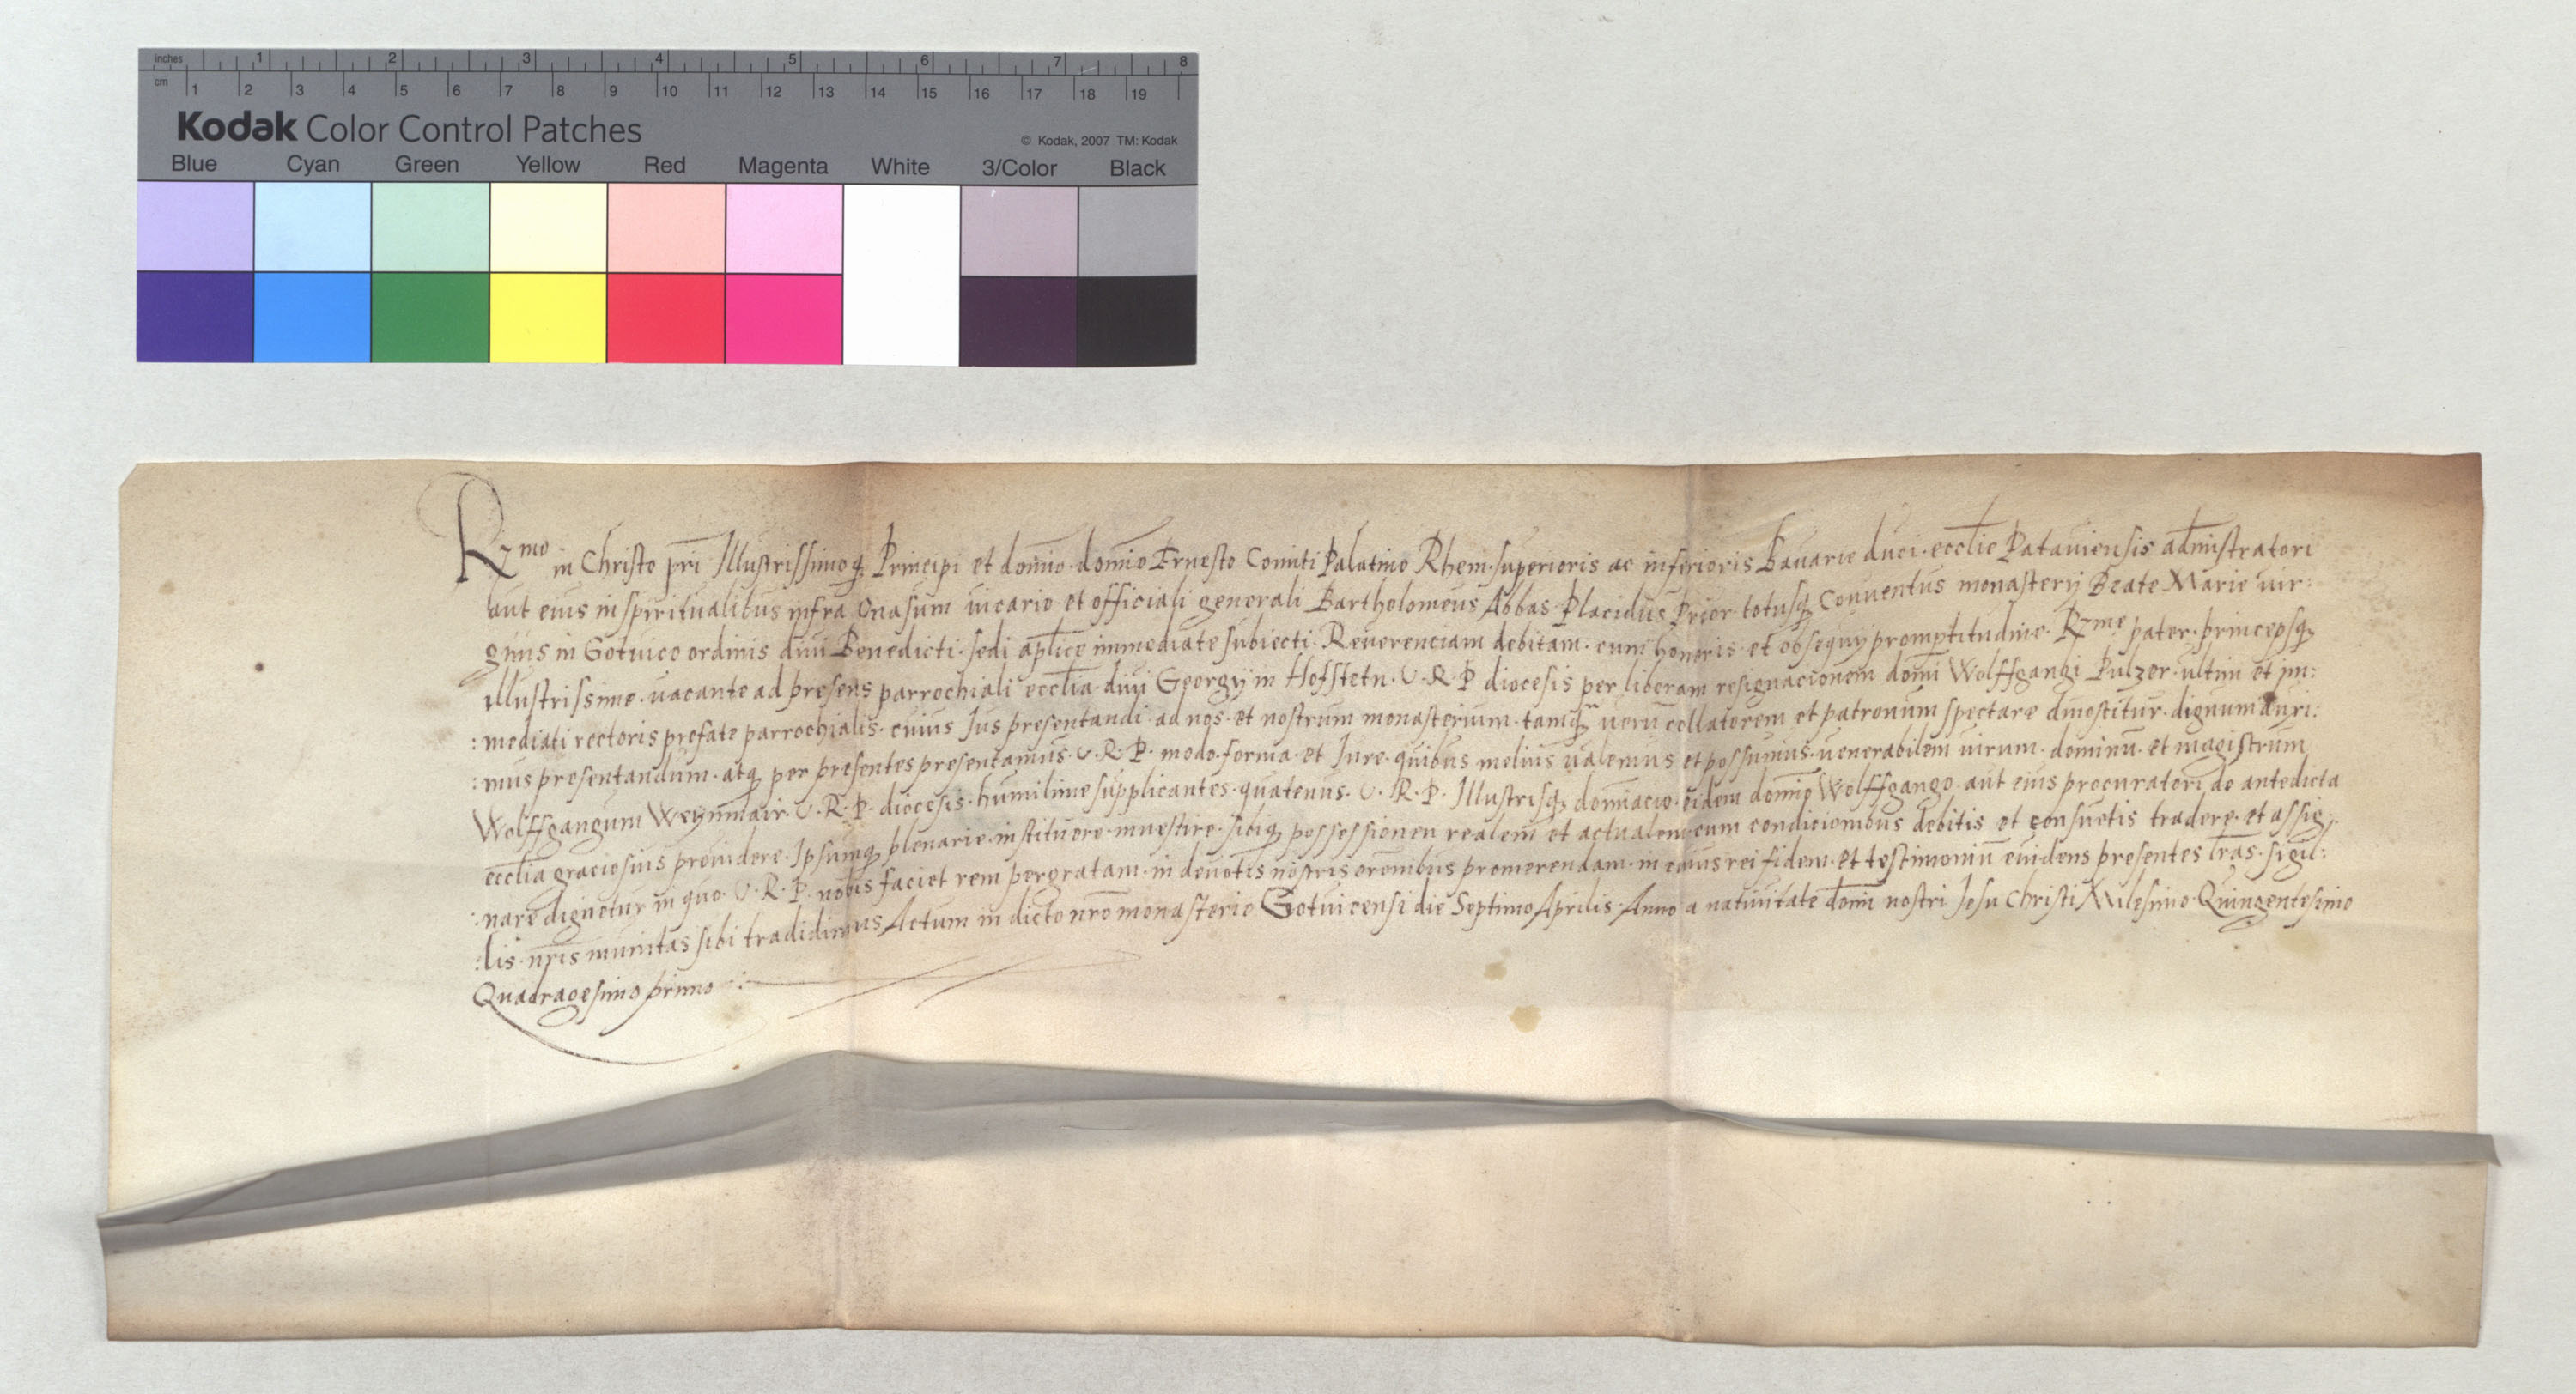 inches 1 2 3 4 5 6 7 8
cm 1 2 3 4 5 6 7 8 9 10 11 12 13 14 15 16 17 18 19
Kodak Color Control Patches
© Kodak, 2007 TM: Kodak
Blue Cyan Green Yellow Red Magenta White 3/Color Black
Rꝫmo in Christo pri Illustrissimoqꝫ Principi et domino domino Ernesto Comiti Palatino Rheni superioris ac inferioris Bavarie duci ecclie Pataviensis administratori
aut eius in spiritualibus infra Onasum vicario et officiali generali Bartholomeus Abbas Placidus Prior totusqꝫ Conventus monasterij Beate Marie vir:
ginis in Gotvico ordinis divi Benedicti sedi aplice immediate subiecti Reverenciam debitam cum honoris et obsequij promptitudine Rꝫme pater princepsqꝫ
illustrissime vacante ad presens parrochiali ecclia divi Georgij in Hofstetn V.R.P diocesis per liberam resignacionem domi Wolffgangi Pulzer ultimi et im:
:mediati rectoris prefate parrochialis cuius Jus presentandi ad nos et nostrum monasterium tamqꝫ verū collatorem et patronum spectare dinoscitur dignum duxi:
:mus presentandum atqꝫ per presentes presentamus V.R.P. modo forma et Jure quibus melius valemus et possumus venerabilem virum dominū et magistrum
Wolffgangum Weynmair V.R.P. diocesis humilime supplicantes quatenus V.R.P. Illustrisqꝫ dominacio eidem domino Wolffgango aut eius procuratori de antedicta
ecclia graciosius providere Ipsumqꝫ plenarie instituere investire sibiqꝫ possessionem realem et actualem cum condicionibus debitis et consuetis tradere et assig:
:nare dignetur in quo V.R.P. nobis faciet rem pergratam in devotis nostris oronibus promerendam in cuius rei fidem et testimoniū evidens presentes lras sigil:
:lis nris munitas sibi tradidimus Actum in dicto nro monasterio Gotvicensi die Septimo Aprilis Anno a nativitate domi nostri Jesu Christi Milesimo Quingentesimo
Quadragesimo primo